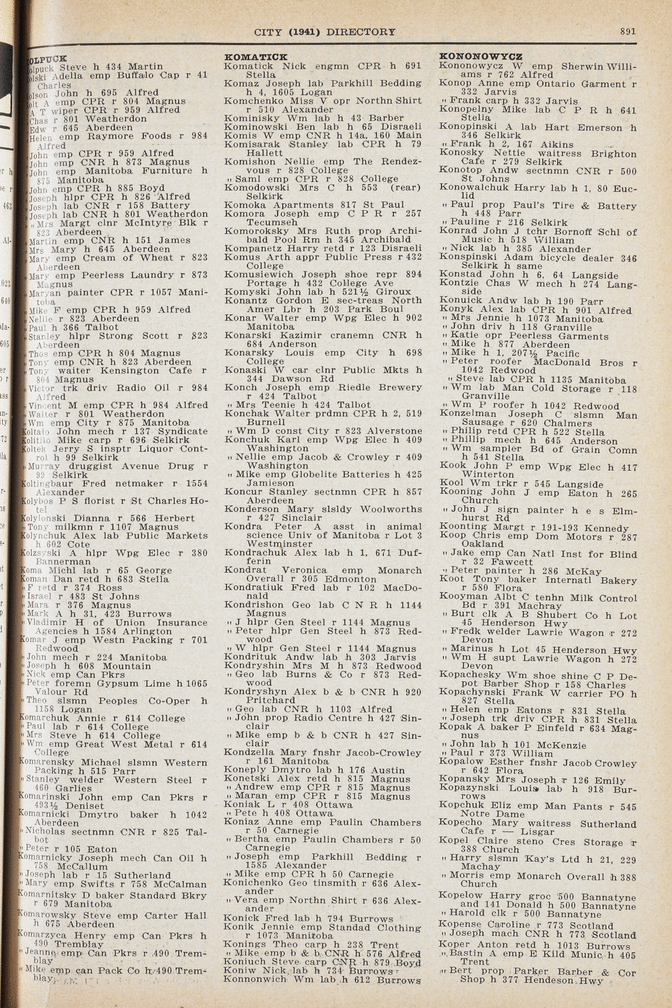 CITY (1941) DIRECTORY 891
OLPUCK
Steve h 434 Martin
Adella emp Buffalo Cap r 41
Charles
John h 695 Alfred
A emp CPR r 804 Magnus
A T wiper CPR r 959 Alfred
Chas r 801 Weatherdon
Edw r 645 Aberdeen
Helen emp Raymore Foods r 984
Alfred
John emp CPR r 959 Alfred
John emp CNR h 873 Magnus
John emp Manitoba Furniture h
875 Manitoba
John emp CPR h 885 Boyd
Joseph hlpr CPR h 826 Alfred
Joseph lab CNR r 158 Battery
Joseph lab CNR h 801 Weatherdon
„ Mrs Margt clnr McIntyre Blk r
823 Aberdeen
Martin emp CNR h 151 James
Mrs Mary h 645 Aberdeen
Mary emp Cream of Wheat r 823
Aberdeen
Mary emp Peerless Laundry r 873
Magnus
Maryan painter CPR r 1057 Mani-
toba
Mike F emp CPR h 959 Alfred
Nellie r 823 Aberdeen
Paul h 366 Talbot
Stanley hlpr Strong Scott r 823
Aberdeen
Thos emp CPR h 804 Magnus
Tony emp CNR h 823 Aberdeen
Tony waiter Kensington Cafe r
804 Magnus
Victor trk driv Radio Oil r 984
Alfred
Vincent M emp CPR h 984 Alfred
Walter r 801 Weatherdon
Wm emp City r 875 Manitoba
Koltalo John mech r 137 Syndicate
Kolitilo Mike carp r 696 Selkirk
Koltek Jerry S insptr Liquor Cont-
rol h 99 Selkirk
„ Murray druggist Avenue Drug r
99 Selkirk
Koltingbaur Fred netmaker r 1554
Alexander
Kolybos P S florist r St Charles Ho-
tel
Kolylonski Dianna r 566 Herbert
„ Tony milkmn r 1107 Magnus
Kolynchuk Alex lab Public Markets
h 602 Cote
Kolzsyski A hlpr Wpg Elec r 380
Bannerman
Koma Michl lab r 65 George
Koman Dan retd h 683 Stella
„ F retd r 374 Ross
„ Israel r 483 St Johns
„ Mara r 376 Magnus
„ Mark A h 31, 423 Burrows
„ Vladimir H of Union Insurance
Agencies h 1584 Arlington
Komar J emp Westn Packing r 701
Redwood
„ John mech r 224 Manitoba
„ Joseph h 608 Mountain
„ Nick emp Can Pkrs
„ Peter foremn Gypsum Lime h 1065
Valour Rd
„ Theo slsmn Peoples Co-Oper h
1158 Logan
Komarchuk Annie r 614 College
„ Paul lab r 614 College
„ Mrs Steve h 614 College
„ Wm emp Great West Metal r 614
College
Komarensky Michael slsmn Western
Packing h 515 Parr
„ Stanley welder Western Steel r
460 Garlies
Komarinski John emp Can Pkrs r
493½ Deniset
Komarnicki Dmytro baker h 1042
Aberdeen
„ Nicholas sectnmn CNR r 825 Tal-
bot
„ Peter r 105 Eaton
Komarnicky Joseph mech Can Oil h
758 McCallum
„ Joseph lab r 15 Sutherland
„ Mary emp Swifts r 758 McCalman
Komarnitsky D baker Standard Bkry
r 679 Manitoba
Komarowsky Steve emp Carter Hall
h 675 Aberdeen
Komarzyca Henry emp Can Pkrs h
490 Tremblay
„ Jeanne emp Can Pkrs r 490 Trem-
blay
„ Mike emp can Pack Co h 490 Trem-
blay
KOMATICK
Komatick Nick engmn CPR h 691
Stella
Komaz Joseph lab Parkhill Bedding
h 4, 1605 Logan
Komchenko Miss V opr Northn Shirt
r 510 Alexander
Kominisky Wm lab h 43 Barber
Kominowski Ben lab h 65 Disraeli
Komis W emp CNR h 14a, 160 Main
Komisarak Stanley lab CPR h 79
Hallett
Komishon Nellie emp The Rendez-
vous r 828 College
„ Saml emp CPR r 828 College
Komodowski Mrs C h 553 (rear)
Selkirk
Komoka Apartments 817 St Paul
Komora Joseph emp C P R r 257
Tecumseh
Komoroksky Mrs Ruth prop Archi-
bald Pool Rm h 345 Archibald
Kompanetz Harry retd r 123 Disraeli
Komus Arth appr Public Press r 432
College
Komusiewich Joseph shoe repr 894
Portage h 432 College Ave
Komyski John lab h 521½ Giroux
Konantz Gordon E sec-treas North
Amer Lbr h 203 Park Boul
Konar Walter emp Wpg Elec h 902
Manitoba
Konarski Kazimir cranemn CNR h
684 Anderson
Konarsky Louis emp City h 698
College
Konaski W car clnr Public Mkts h
344 Dawson Rd
Konch Joseph emp Riedle Brewery
r 424 Talbot
„ Mrs Teenie h 424 Talbot
Konchak Walter prdmn CPR h 2, 519
Burnell
„ Wm D const City r 823 Alverstone
Konchuk Karl emp Wpg Elec h 409
Washington
„ Nellie emp Jacob & Crowley r 409
Washington
„ Mike emp Globelite Batteries h 425
Jamieson
Koncur Stanley sectnmn CPR h 857
Aberdeen
Konderson Mary slsldy Woolworths
r 427 Sinclair
Kondra Peter A asst in animal
science Univ of Manitoba r Lot 3
Westminster
Kondrachuk Alex lab h 1, 671 Duf-
ferin
Kondrat Veronica emp Monarch
Overall r 305 Edmonton
Kondratiuk Fred lab r 102 MacDo-
nald
Kondrishon Geo lab C N R h 1144
Magnus
„ J hlpr Gen Steel r 1144 Magnus
„ Peter hlpr Gen Steel h 873 Red-
wood
„ W hlpr Gen Steel r 1144 Magnus
Kondrituk Andw lab h 303 Jarvis
Kondryshin Mrs M h 873 Redwood
„ Geo lab Burns & Co r 873 Red-
wood
Kondryshyn Alex b & b CNR h 920
Pritchard
„ Geo lab CNR h 1103 Alfred
„ John prop Radio Centre h 427 Sin-
clair
„ Mike emp b & b CNR h 427 Sin-
clair
Kondzella Mary fnshr Jacob-Crowley
r 161 Manitoba
Koneply Dmytro lab h 176 Austin
Konetski Alex retd h 815 Magnus
„ Andrew emp CPR r 815 Magnus
„ Maran emp CPR r 815 Magnus
Koniak L r 408 Ottawa
„ Pete h 408 Ottawa
Koniaz Anne emp Paulin Chambers
r 50 Carnegie
„ Bertha emp Paulin Chambers r 50
Carnegie
„ Joseph emp Parkhill Bedding r
1585 Alexander
„ Mike emp CPR h 50 Carnegie
Konichenko Geo tinsmith r 636 Alex-
ander
„ Vera emp Northn Shirt r 636 Alex-
ander
Konick Fred lab h 794 Burrows
Konik Jennie emp Standad Clothing
r 1073 Manitoba
Konings Theo carp h 238 Trent
„ Mike emp b & b CNR h 576 Alfred
Koniuch Steve carp CNR h 879 Boyd
Koniw Nick lab h 734 Burrows
Konnonwich Wm lab h 612 Burrows
KONONOWYCZ
Kononowycz W emp Sherwin Willi-
ams r 762 Alfred
Konop Anne emp Ontario Garment r
332 Jarvis
„ Frank carp h 332 Jarvis
Konopelny Mike lab C P R h 641
Stella
Konopinski A lab Hart Emerson h
346 Selkirk
„ Frank h 2, 167 Aikins
Konosky Nettie waitress Brighton
Cafe r 279 Selkirk
Konotop Andw sectnmn CNR r 500
St Johns
Konowalchuk Harry lab h 1, 80 Euc-
lid
„ Paul prop Paul's Tire & Battery
h 448 Parr
„ Pauline r 216 Selkirk
Konrad John J tchr Bornoff Schl of
Music h 518 William
„ Nick lab h 385 Alexander
Konspinski Adam bicycle dealer 346
Selkirk h same
Konstad John h 6, 64 Langside
Kontzie Chas W mech h 274 Lang-
side
Konuick Andw lab h 190 Parr
Konyk Alex lab CPR h 901 Alfred
„ Mrs Jennie h 1073 Manitoba
„ John driv h 118 Granville
„ Katie opr Peerless Garments
„ Mike h 877 Aberdeen
„ Mike h 1, 207½ Pacific
„ Peter roofer MacDonald Bros r
1042 Redwood
„ Steve lab CPR h 1135 Manitoba
„ Wm lab Man Cold Storage r 118
Granville
„ Wm P roofer h 1042 Redwood
Konzelman Joseph C slsmn Man
Sausage r 620 Chalmers
„ Phillip retd CPR h 522 Stella
„ Phillip mech h 645 Anderson
„ Wm sampler Bd of Grain Comn
h 541 Stella
Kook John P emp Wpg Elec h 417
Winterton
Kool Wm trkr r 545 Langside
Kooning John J emp Eaton h 265
Church
„ John J sign painter h e s Elm-
hurst Rd
Koonting Margt r 191-193 Kennedy
Koop Chris emp Dom Motors r 287
Oakland
„ Jake emp Can Natl Inst for Blind
r 32 Fawcett
„ Peter painter h 286 McKay
Koot Tony baker Internatl Bakery
r 580 Flora
Kooyman Albt C tenhn Milk Control
Bd r 391 Machray
„ Burt clk A B Shubert Co h Lot
45 Henderson Hwy
„ Fredk welder Lawrie Wagon r 272
Devon
„ Marinus h Lot 45 Henderson Hwy
„ Wm H supt Lawrie Wagon h 272
Devon
Kopachesky Wm shoe shine C P De-
pot Barber Shop r 158 Charles
Kopachynski Frank W carrier PO h
827 Stella
„ Helen emp Eatons r 831 Stella
„ Joseph trk driv CPR h 831 Stella
Kopak A baker P Einfeld r 634 Mag-
nus
„ John lab h 101 McKenzie
„ Paul r 373 William
Kopalow Esther fnshr Jacob Crowley
r 642 Flora
Kopansky Mrs Joseph r 126 Emily
Kopazynski Louis lab h 918 Bur-
rows
Kopchuk Eliz emp Man Pants r 545
Notre Dame
Kopecho Mary waitress Sutherland
Cafe r — Lisgar
Kopel Claire steno Cres Storage r
388 Church
„ Harry slsmn Kay's Ltd h 21, 229
Machay
„ Morris emp Monarch Overall h 388
Church
Kopelow Harry groc 500 Bannatyne
and 141 Donald h 500 Bannatyne
„ Harold clk r 500 Bannatyne
Kopense Caroline r 773 Scotland
„ Joseph mach CNR h 773 Scotland
Koper Anton retd h 1013 Burrows
„ Bastin A emp E Kild Munic h 405
Trent
„ Bert prop Parker Barber & Cor
Shop h 377 Hendeson Hwy